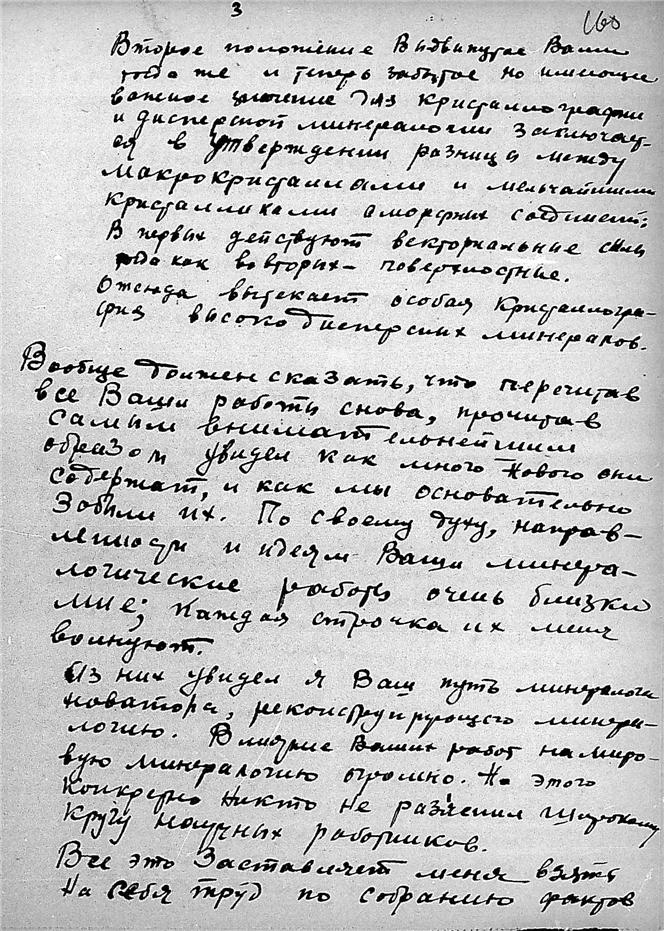 3
160
Второе положение выдвинутое Вами
тогда же и теперь забытое но имеющее
важное значение для кристаллографии
и дисперсной минералогии заключает-
ся в утверждении разницы между
макрокристаллами и мельчайшими
кристалликами аморфных соединений:
В первых действуют векториальные силы
тогда как во вторых – поверхностные.
Отсюда вытекает особая кристаллогра-
фия высоко дисперсных минералов.
Вообще должен сказать, что перечитав
все Ваши работы снова, прочитав
самым внимательнейшим
образом увидел как много нового они
содержат, и как мы основательно
забыли их. По своему духу, направ-
ленности и идеям Ваши минера-
логические работы очень близки
мне; каждая строчка их меня
волнуют.
Из них увидел я Ваш путь минералога
новатора, реконструирующего минера-
логию. Влияние Ваших работ на миро-
вую минералогию огромно. Но этого
конкретно никто не разъяснил широкому
кругу научных работников.
Все это заставляет меня взять
на себя труд по собранию фактов